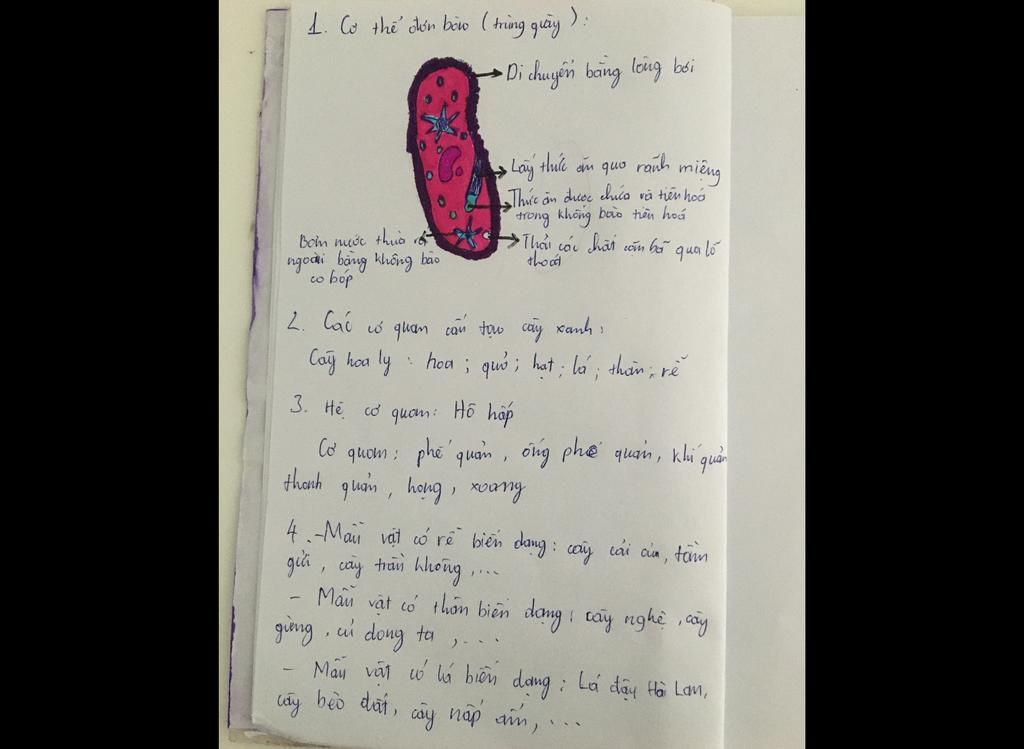 1. Cơ thể đơn bào (trùng giày):
Di chuyển bằng lông bơi
Lấy thức ăn qua rãnh miệng
Thức ăn được chứa và tiêu hoá
trong không bào tiêu hoá
Thải các chất cặn bã qua lỗ
thoát
Bơm nước thừa ra
ngoài bằng không bào
co bóp
2. Các cơ quan cấu tạo cây xanh:
Cây hoa ly: hoa; quả; hạt; lá; thân; rễ
3. Hệ cơ quan: Hô hấp
Cơ quan: phế quản, ống phế quản, khí quản
thanh quản, họng, xoang
4. - Mẫu vật có rễ biến dạng: cây cải củ, tầm
gửi, cây trầu không,...
- Mẫu vật có thân biến dạng: cây nghệ, cây
gừng, củ dong ta,...
- Mẫu vật có lá biến dạng: Lá đậu Hà Lan,
cây bèo đất, cây nắp ấm,...